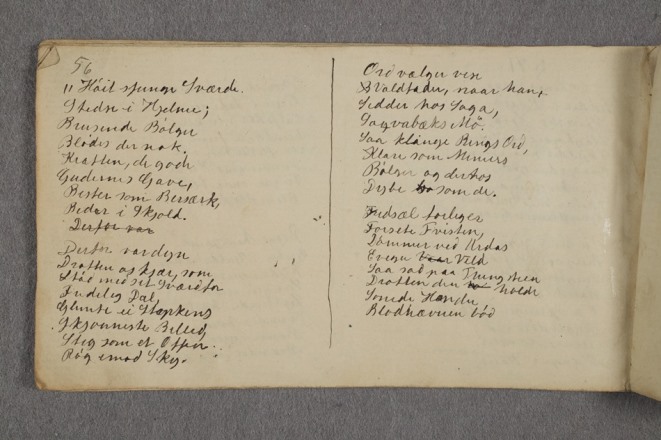 56
"Høit sjunge Sværde.
Stedse i Hjelme;
Brusende Bølger
Blodes der nok.
Kraften, de gode
Guders Gave,
Bister som Bersærk,
Bider i Skjold.
Derfor var
Derfor var dyn
Drotten os kjær, som
Stod med sit Sværd for
Fredelig Dal,
Skjønneste Billed,
Steg som et Offer
Røg imod Sky.
Ord vælger vis
Valdfader, naar han,
Sidder hos Saga,
Søqvabæks Mø.
Saa klånge Rings Ord,
Klare som Mimers
Bølger og derhos
Dybe som de.
Fredsæl forliger
Forsete Tvisten,
Dømmer ved Urdas
Evige Væld
Saa sad paa Thingsteen
Drotten den holdt
Sonede Hænder,
Blodhævnen bød